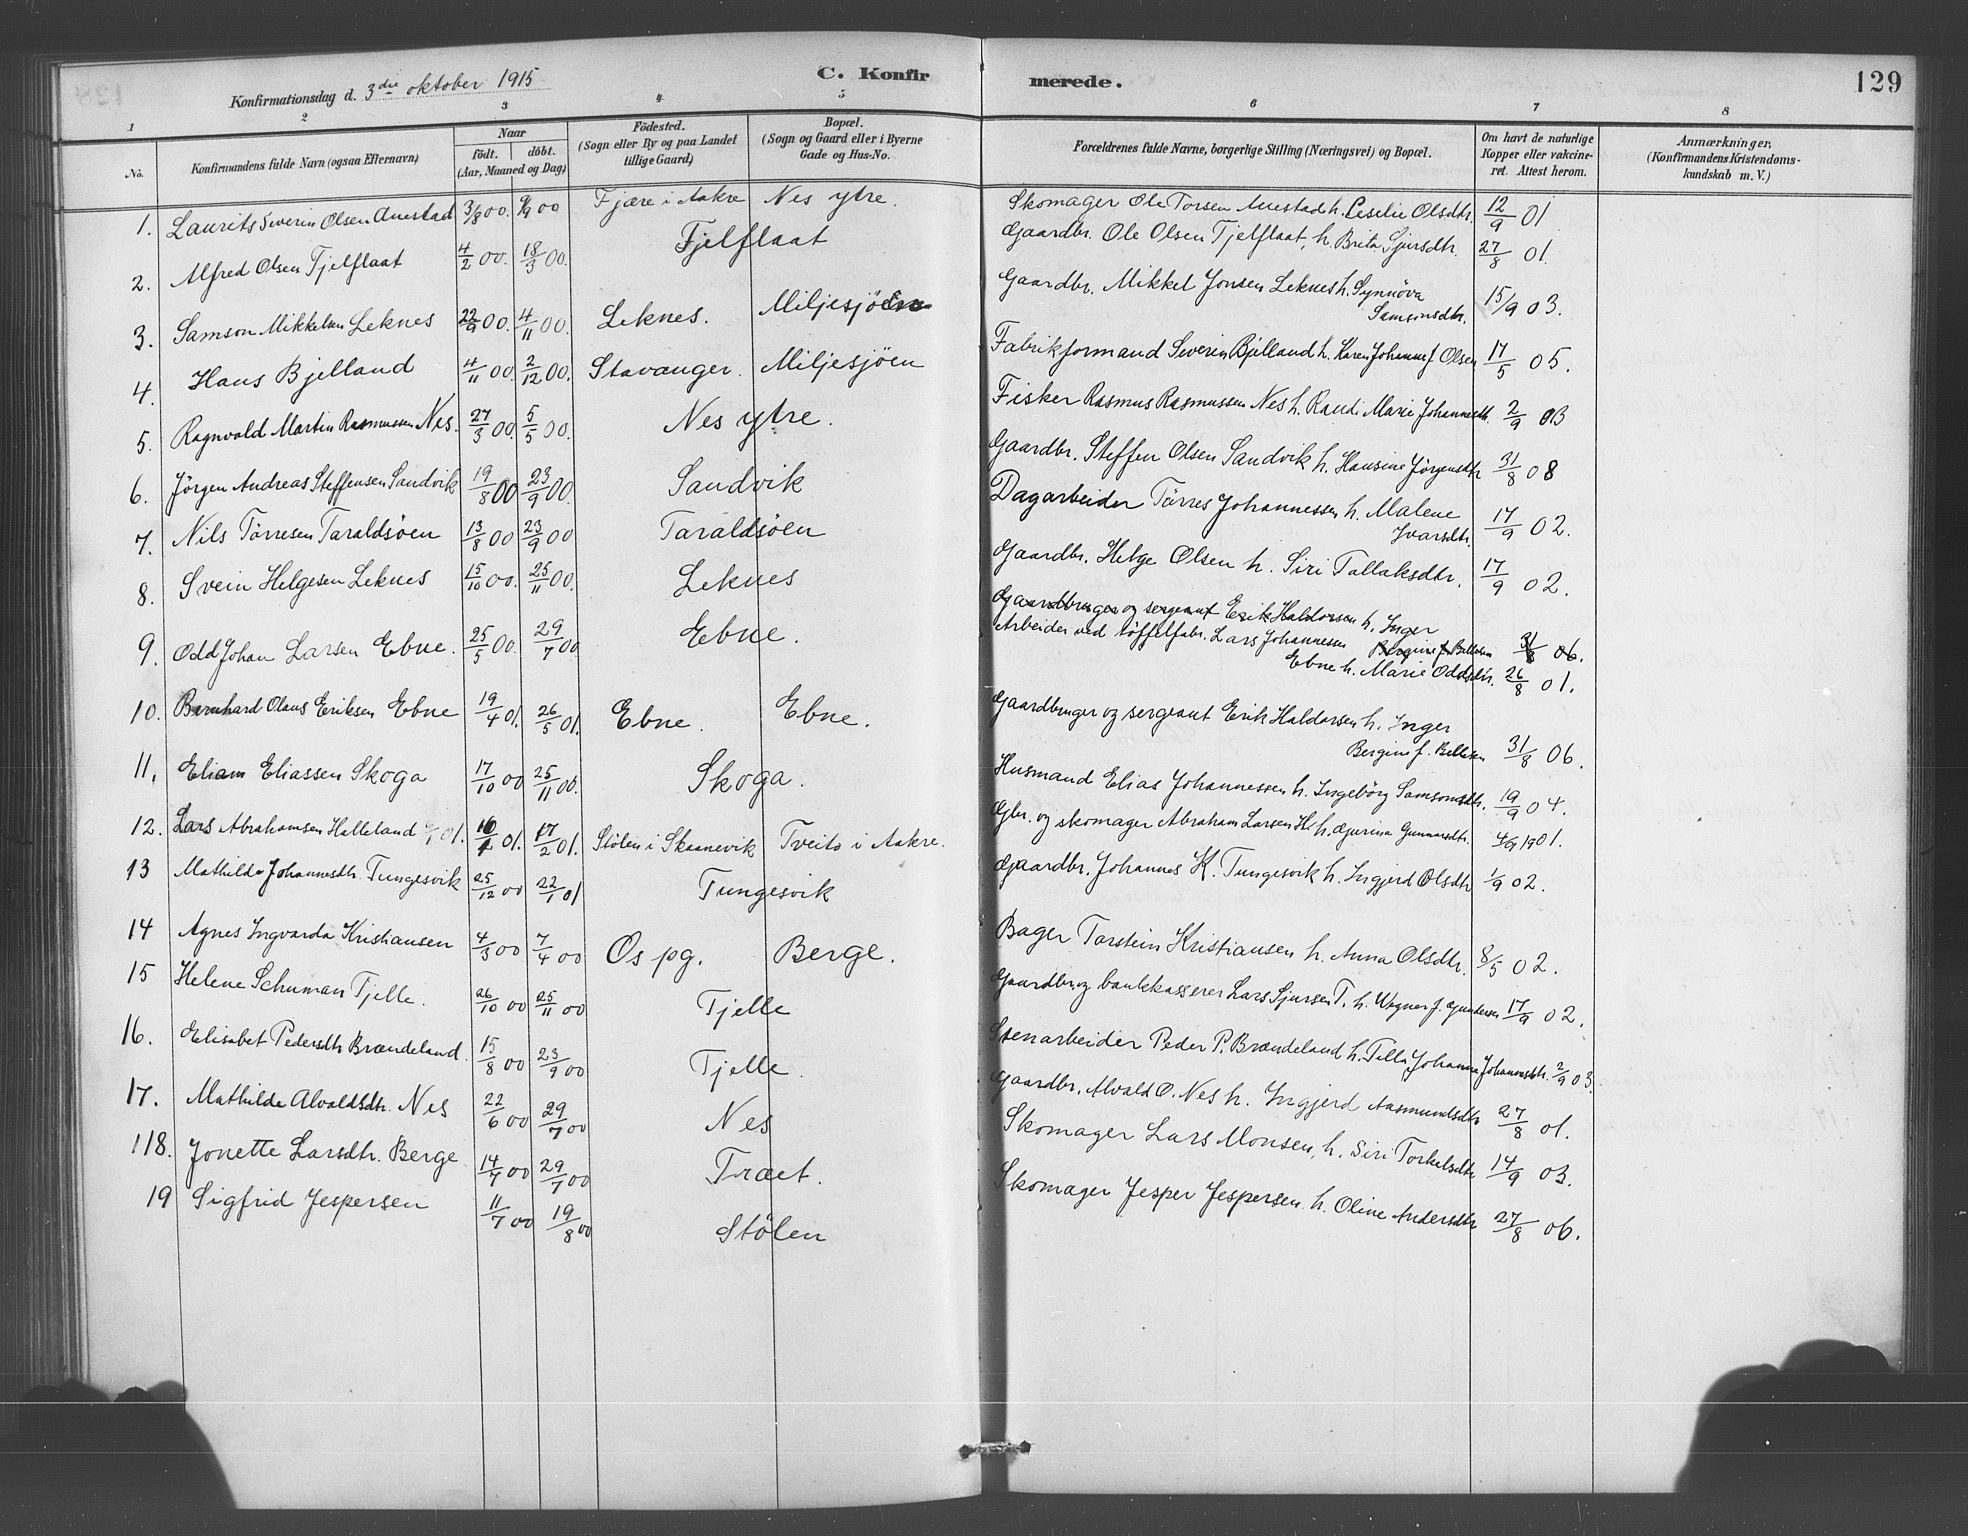 C. Konfirmerede. 129
Konfirmationsdag d. 3die oktober 1915
1 2 3 4 5 6 7 8
No. Konfirmandens fulde Navn (ogsaa Efternavn) Naar födt. döbt. (Aar, Maaned og Dag) Födested. (Sogn eller By og paa Landet tillige Gaard) Bopæl. (Sogn og Gaard eller i Byerne Gade og Hus-No. Forældrenes fulde Navne, borgerlige Stilling (Næringsvei) og Bopæl. Om havt de naturlige Kopper eller vakcineret. Attest herom. Anmærkninger. (Konfirmandens Kristendomskundskab m. V.)
1. Laurits Severin Olsen Auestad 3/8 00. 9/9 00 Fjære i Aakre Nes ytre. Skomager Ole Torsen Auestad h. Cecilie Olsdtr. 12/9 01
2. Alfred Olsen Fjelflaat 4/2 00. 18/3 00. Fjelflaat Gaardbr. Ole Olsen Fjelflaat, h. Brita Sjursdtr. 27/8 01.
3. Samson Mikkelsen Leknes 22/9 00. 4/11 00. Leknes. Miljesjöen Gaardbr. Mikkel Jonsen Leknes h. Synnöva
Samsonsdtr. 15/9 03.
4. Hans Bjelland 4/11 00. 2/12 00. Stavanger. Miljesjöen Fabrikformand Severin Bjelland h. Karen Johanne f. Olsen 17/5 05.
5. Ragnvald Martin Rasmussen Nes. 27/3 00. 5/5 00. Nes ytre. Fisker Rasmus Rasmussen Nes h. Randi Marie Johannesdtr. 2/9 03
6. Jörgen Andreas Steffensen Sandvik 19/8 00 23/9 00. Sandvik Gaardbr. Steffen Olsen Sandvik h. Hansine Jörgensdtr 31/8 08
7. Nils Törresen Taraldsöen 13/8 00 23/9 00 Taraldsöen Dagarbeider Törres Johannessen h. Malene
Ivarsdtr. 17/9 02.
8. Svein Helgesen Leknes 15/10 00. 25/11 00. Leknes Gaardbr. Helge Olsen h. Siri Tallaksdtr. 17/9 02.
Gaardbruger og sergeant Erik Haldorsen h. Inger
Bergine f. Belleken 31/8 06.
9. Odd Johan Larsen Ebne. 25/5 00. 29/7 00 Ebne. Arbeider ved töffelfabr. Lars Johannessen
Ebne h. Marie Oddsdtr. 26/8 01.
10. Bernhard Olaus Eriksen Ebne 19/4 01. 26/5 01. Ebne. Ebne. Gaardbruger og sergeant Erik Haldorsen h. Inger
Bergine f. Belleken 31/8 06.
11. Eliam Eliassen Skoga 17/10 00 25/11 00. Skoga. Husmand Elias Johannessen h. Ingebörg Samsonsdtr. 19/9 04.
12. Lars Abrahamsen Halleland 01. 17/2 01. Stölen i Skaanevik Tveito i Aakre. Gbr. og skomager Abraham Larsen H. h. Gjurina Gunnarsdtr. 4/9 1901.
13 Mathilde Johannesdtr. Tungesvik 25/12 00 22/1 01 Tungesvik Gaardbr. Johannes K. Tungesvik h. Ingjerd Olsdtr 1/9 02.
14 Agnes Ingvarda Kristiansen 4/3 00 7/4 00 Os pg. Berge. Bager Torstein Kristiansen h. Anna Olsdtr. 8/5 02.
15 Helene Schuman Tjelle. 26/10 00 25/11 00 Tjelle Gaardbr. og bankkasserer Lars Sjursen T. h. Wegner f. Gundersen 17/9 02.
16. Elisabet Pedersdtr Brændeland. 15/8 00 23/9 00 Tjelle. Stenarbeider Peder P. Brændeland h. Tilla Johanna Johannesdtr. 2/9 03
17. Mathilde Alvaldsdtr. Nes 22/6 00 29/7 00 Nes Gaardbr. Alvald O. Nes h. Ingjerd Aasmundsdtr 27/8 01.
118. Jonette Larsdtr. Berge 14/7 00 29/7 00 Træet. Skomager Lars Monsen, h. Siri Torkelsdtr 14/9 03.
19 Sigfrid Jespersen 11/7 00 19/8 00 Stölen Skomager Jesper Jespersen h. Oline Andersdtr 27/8 06.